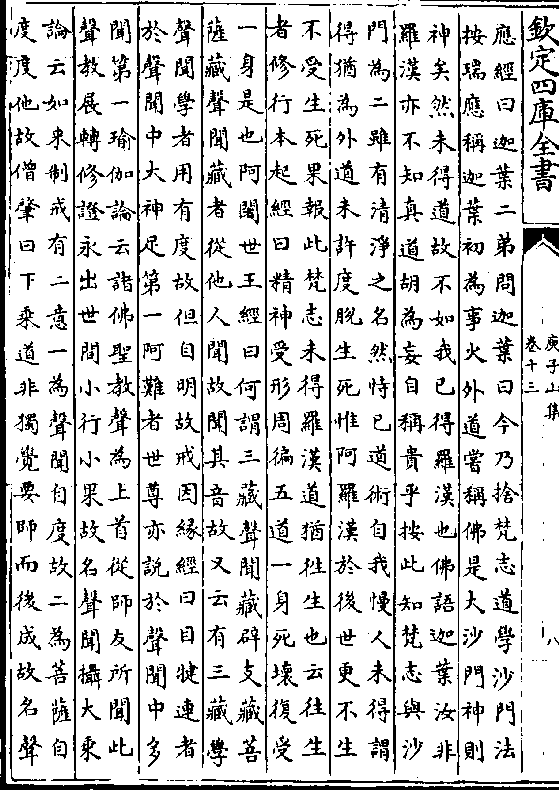 欽定四庫全書
庾子山集
卷十三
八
應經曰迦葉二弟問迦葉曰今乃捨梵志道學沙門法
按瑞應稱迦葉初為事火外道嘗稱佛是大沙門神則
神矣然未得道故不如我已得羅漢也佛語迦葉汝非
羅漢亦不知真道胡為妄自稱貴乎按此知梵志與沙
門為二雖有清淨之名然恃已道術自我慢人未得謂
得猶為外道未許度脫生死惟阿羅漢於後世更不生
不受生死果報此梵志未得羅漢道猶徃生也云徃生
者修行本起經曰精神受形周徧五道一身死壞復受
一身是也阿闍世王經曰何謂三藏聲聞藏辟支藏菩
薩藏聲聞藏者從他人聞故聞其音故又云有三藏學
聲聞學者用有度故但自明故戒因緣經曰目犍連者
於聲聞中大神足第一阿難者世尊亦說於聲聞中多
聞第一瑜伽論云諸佛聖教聲為上首從師友所聞此
聲教展轉修證永出世間小行小果故名聲聞攝大乘
論云如来制戒有二意一為聲聞自度故二為菩薩自
度度他故僧肇曰下乘道非獨覺要師而後成故名聲